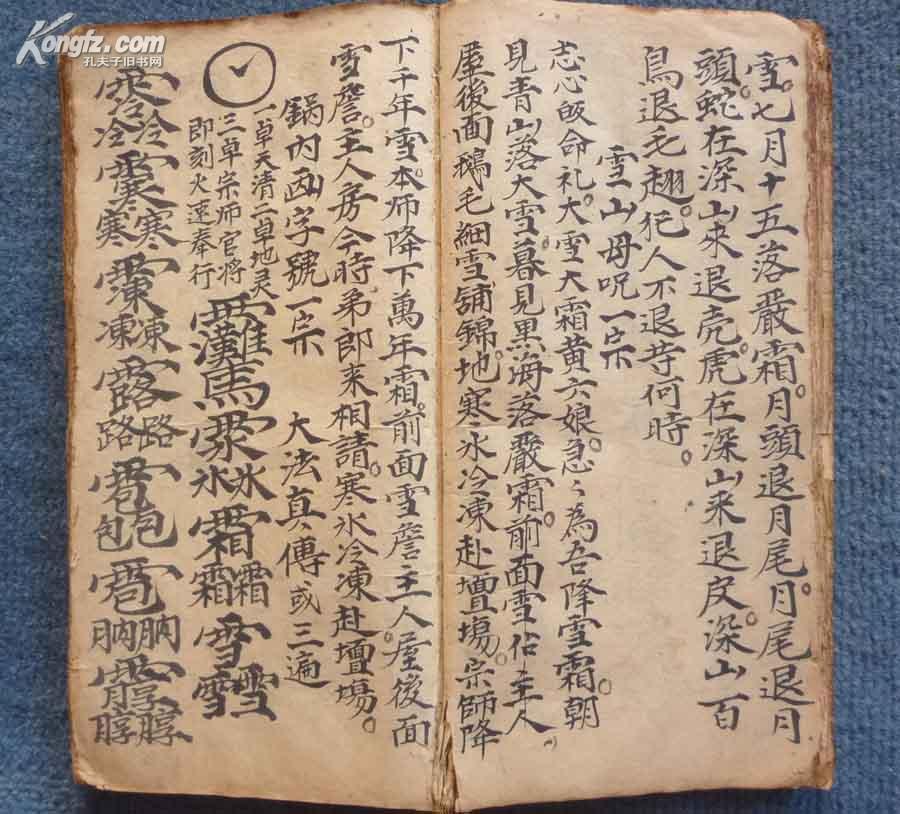 Kongfz.com
孔夫子旧书网
雪。七月十五落嚴霜。月頭退月尾。月尾退月
頭。蛇在深山來退壳。虎在深山来退皮。深山百
鳥退毛翅。犯人不退等何時。
雪山毋呪一宗
志心皈命礼。大雪大霜黄六娘。急〻為吾降雪霜。朝
見青山落大雪。暮見黑海落嚴霜。前面雪佔主人
屋後面鵝毛細雪舖錦地。寒氷冷凍赴壇塲。宗師降
下千年雪。本师降下萬年霜。前面雪詹主人屋後面
雪詹。主人房今時弟郎来相請。寒氷冷凍赴壇塲。
鍋内凶字號一宗 大法真傳或三遍
一卓天清二卓地灵
三卓宗师官将
即刻火速奉行
冷冷
寒寒
凍凍
露路路
包包